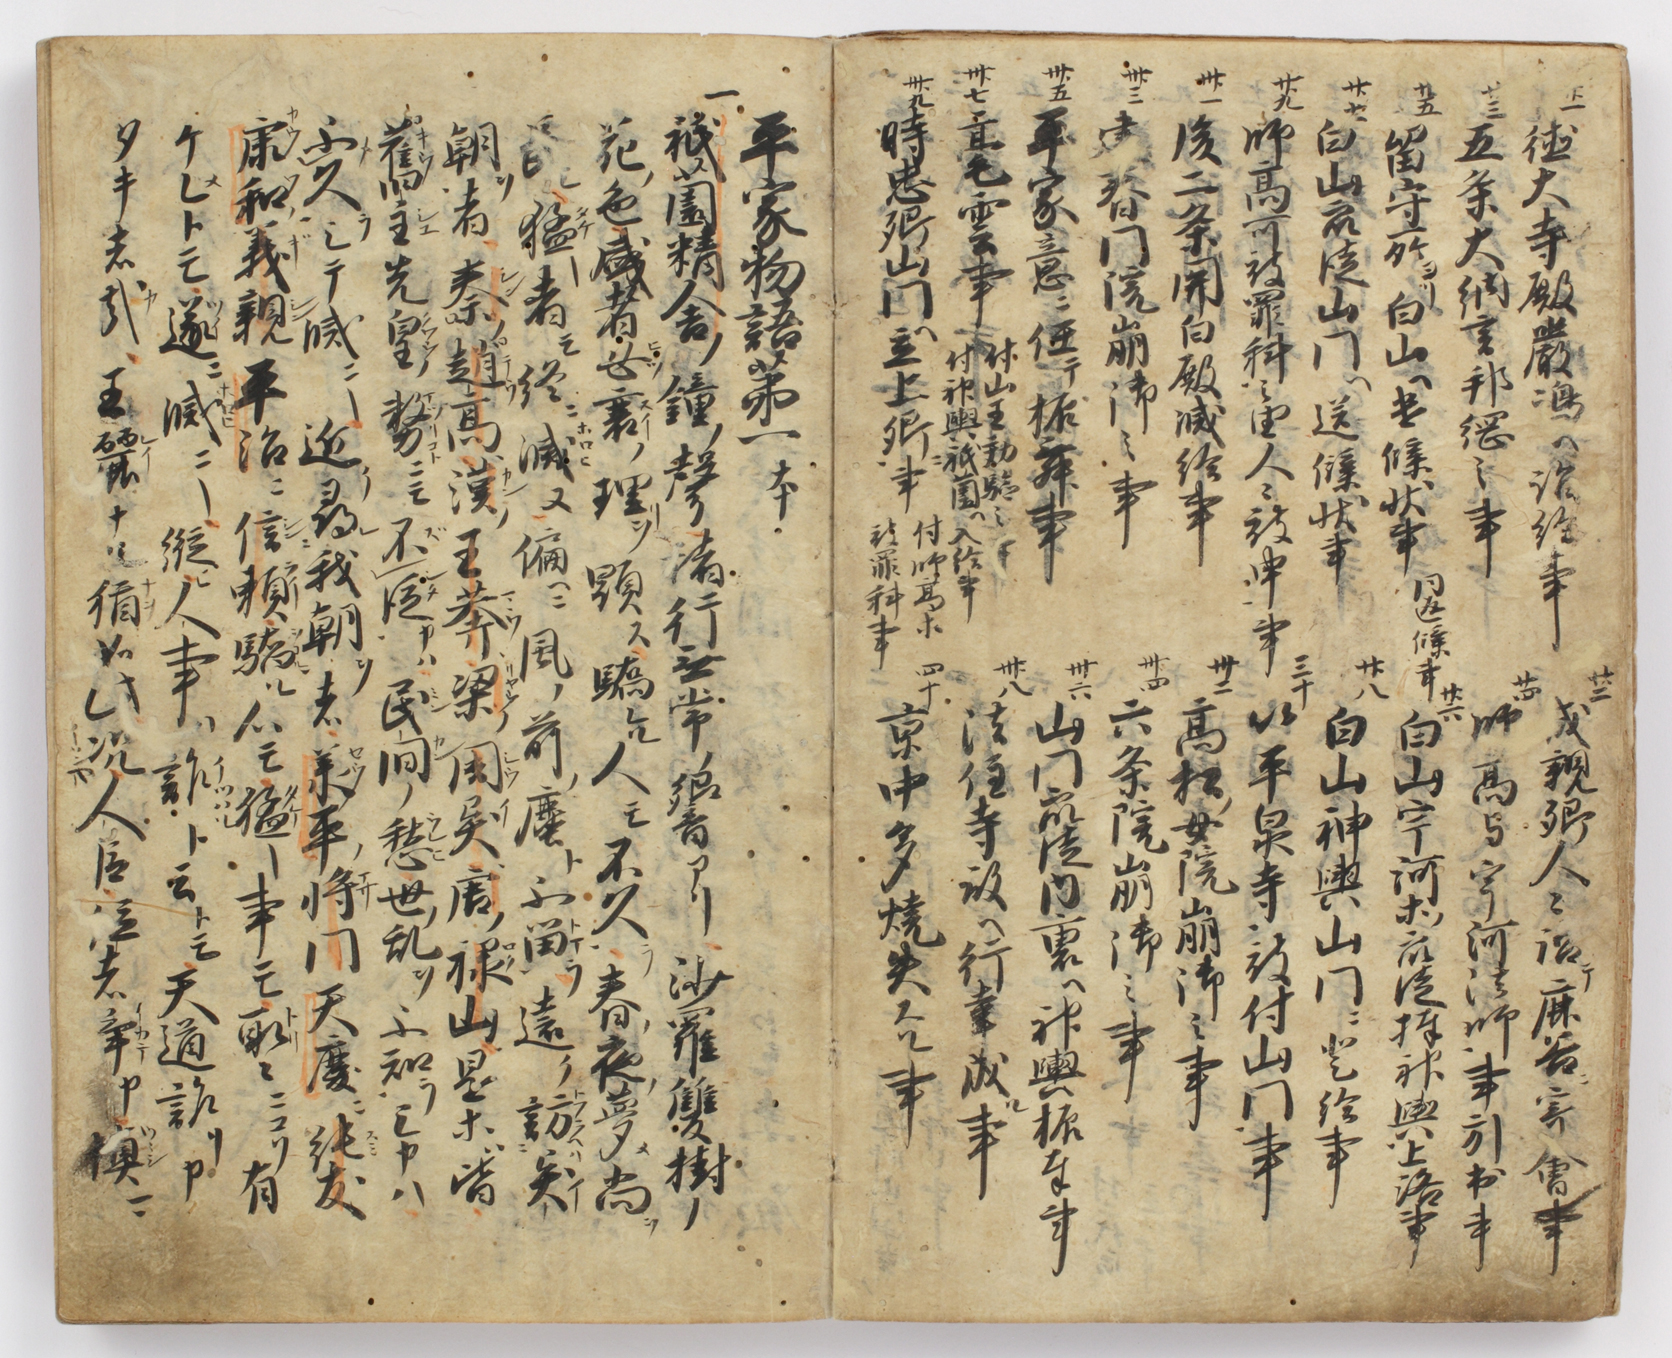 廿一 徳大寺殿厳嶋ヘ詣給事
廿二 成親卿人々語テ鹿谷ニ寄會事
廿三 五条大納言邦綱之事
廿四 師高与宇河法師事引出事
廿五 留守所ヨリ白山ヘ遣牒状事 同返牒事
廿六 白山宇河等衆徒捧神輿上洛事
廿七 白山衆徒山門ヘ送牒状事
廿八 白山神輿山門ニ登給事
廿九 師高可被罪科之由人々被申事
三十 以平泉寺被付山門事
卅一 後二条関白殿滅給事
卅二 高松女院崩御之事
卅三 建春門院崩御之事
卅四 六条院崩御之事
卅五 平家意ニ任テ振舞事
卅六 山門衆徒内裏ヘ神輿振奉事
卅七 豪雲事 付山王効験之事 付神輿祇園ヘ入給事
卅八 法住寺殿ヘ行幸成ル事
卅九 時忠卿山門ヘ立上卿ニ事 付師高等被罪科事
四十 京中多焼失スル事
平家物語第一本
一 祇園精舎ノ鐘ノ聲諸行無常ノ響アリ沙羅雙樹ノ
花ノ色盛者必衰ノ理ヲ顕ス驕レル人モ不久春ノ夜ノ夢尚
猛者モ終ニ滅又偏ヘニ風ノ前ノ塵ト不留遠ク訪異
朝者秦ノ趙高漢ノ王莽梁ノ周異唐ノ禄山是等皆
舊主先皇ノ務ニモ不従民間ノ愁世ノ乱ヲ不知シカハ
不久シテ滅ニキ近ク尋我朝ヲ者承平ノ将門天慶ニ純友
康和ノ義親平治ニ信頼驕ル心モ猛キ事モ取々ニコソ有
ケレトモ遂ニ滅ニキ縦ヒ人事ハ詐ト云トモ天道詐リ
タキ者哉王麗ナル猶如此況人臣位者争カ慎マ